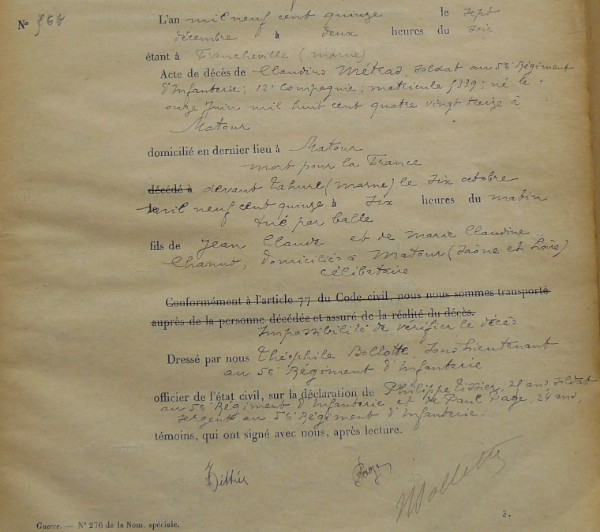 L'an mil neuf cent quinze le sept
N° 768
décembre à deux heures du soir
étant à Francheville (Marne)
Acte de décès de Claudius Métras, soldat au 5e Régiment
d'Infanterie; 12e Compagnie; matricule 9339; né le
onze Juin mil huit cent quatre vingt treize à
Matour
domicilié en dernier lieu à Matour
mort pour la France
décédé à devant Tahure (Marne) le six octobre
mil neuf cent quinze à six heures du matin
tué par balle
fils de Jean Claude et de Marie Claudine
Chanut, domiciliés à Matour (Saône et Loire)
célibataire
Conformément à l'article 77 du Code civil, nous nous sommes transporté
auprès de la personne décédée et assuré de la réalité du décès.
Impossibilité de vérifier le décès
Dressé par nous Théophile Bollotte, Sous Lieutenant
au 5e Régiment d'Infanterie
officier de l'état civil, sur la déclaration de Philippe 28 ans soldat
au 5e Régiment d'Infanterie et de Paul Page, 24 ans,
sergent au 5e Régiment d'Infanterie.
témoins, qui ont signé avec nous, après lecture.
Page
Guerre. — N° 276 de la Nom. spéciale.